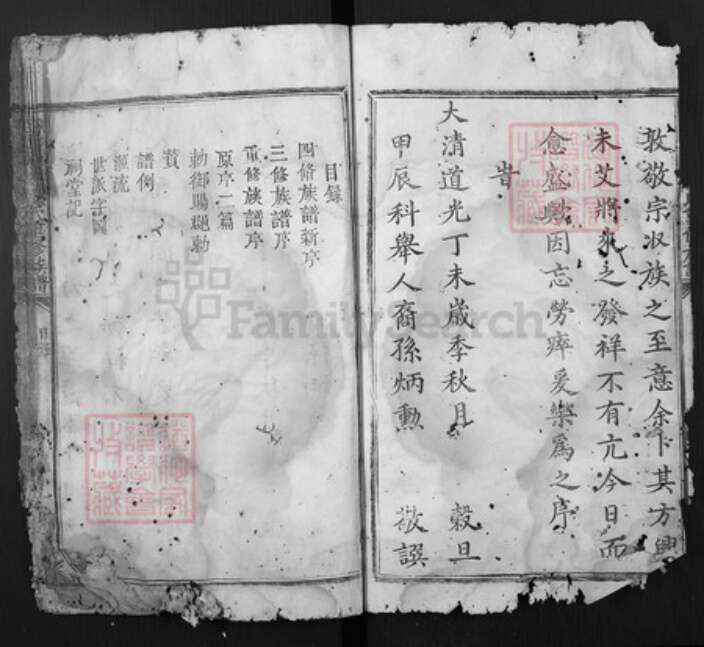 敦敬宗收族之至意余卜其方興
未艾將來之發祥不有亢今日而
愈盛歟因忘勞瘁爰樂爲之序
旹
大清道光丁未歲季秋月 穀旦
甲辰科舉人裔孫炳勳 敬譔
目錄
四修族譜新序
三修族譜序
重修族譜序
原序二篇
勅御賜
贊
譜例
源流
世派字
祠堂記
FamilySearch